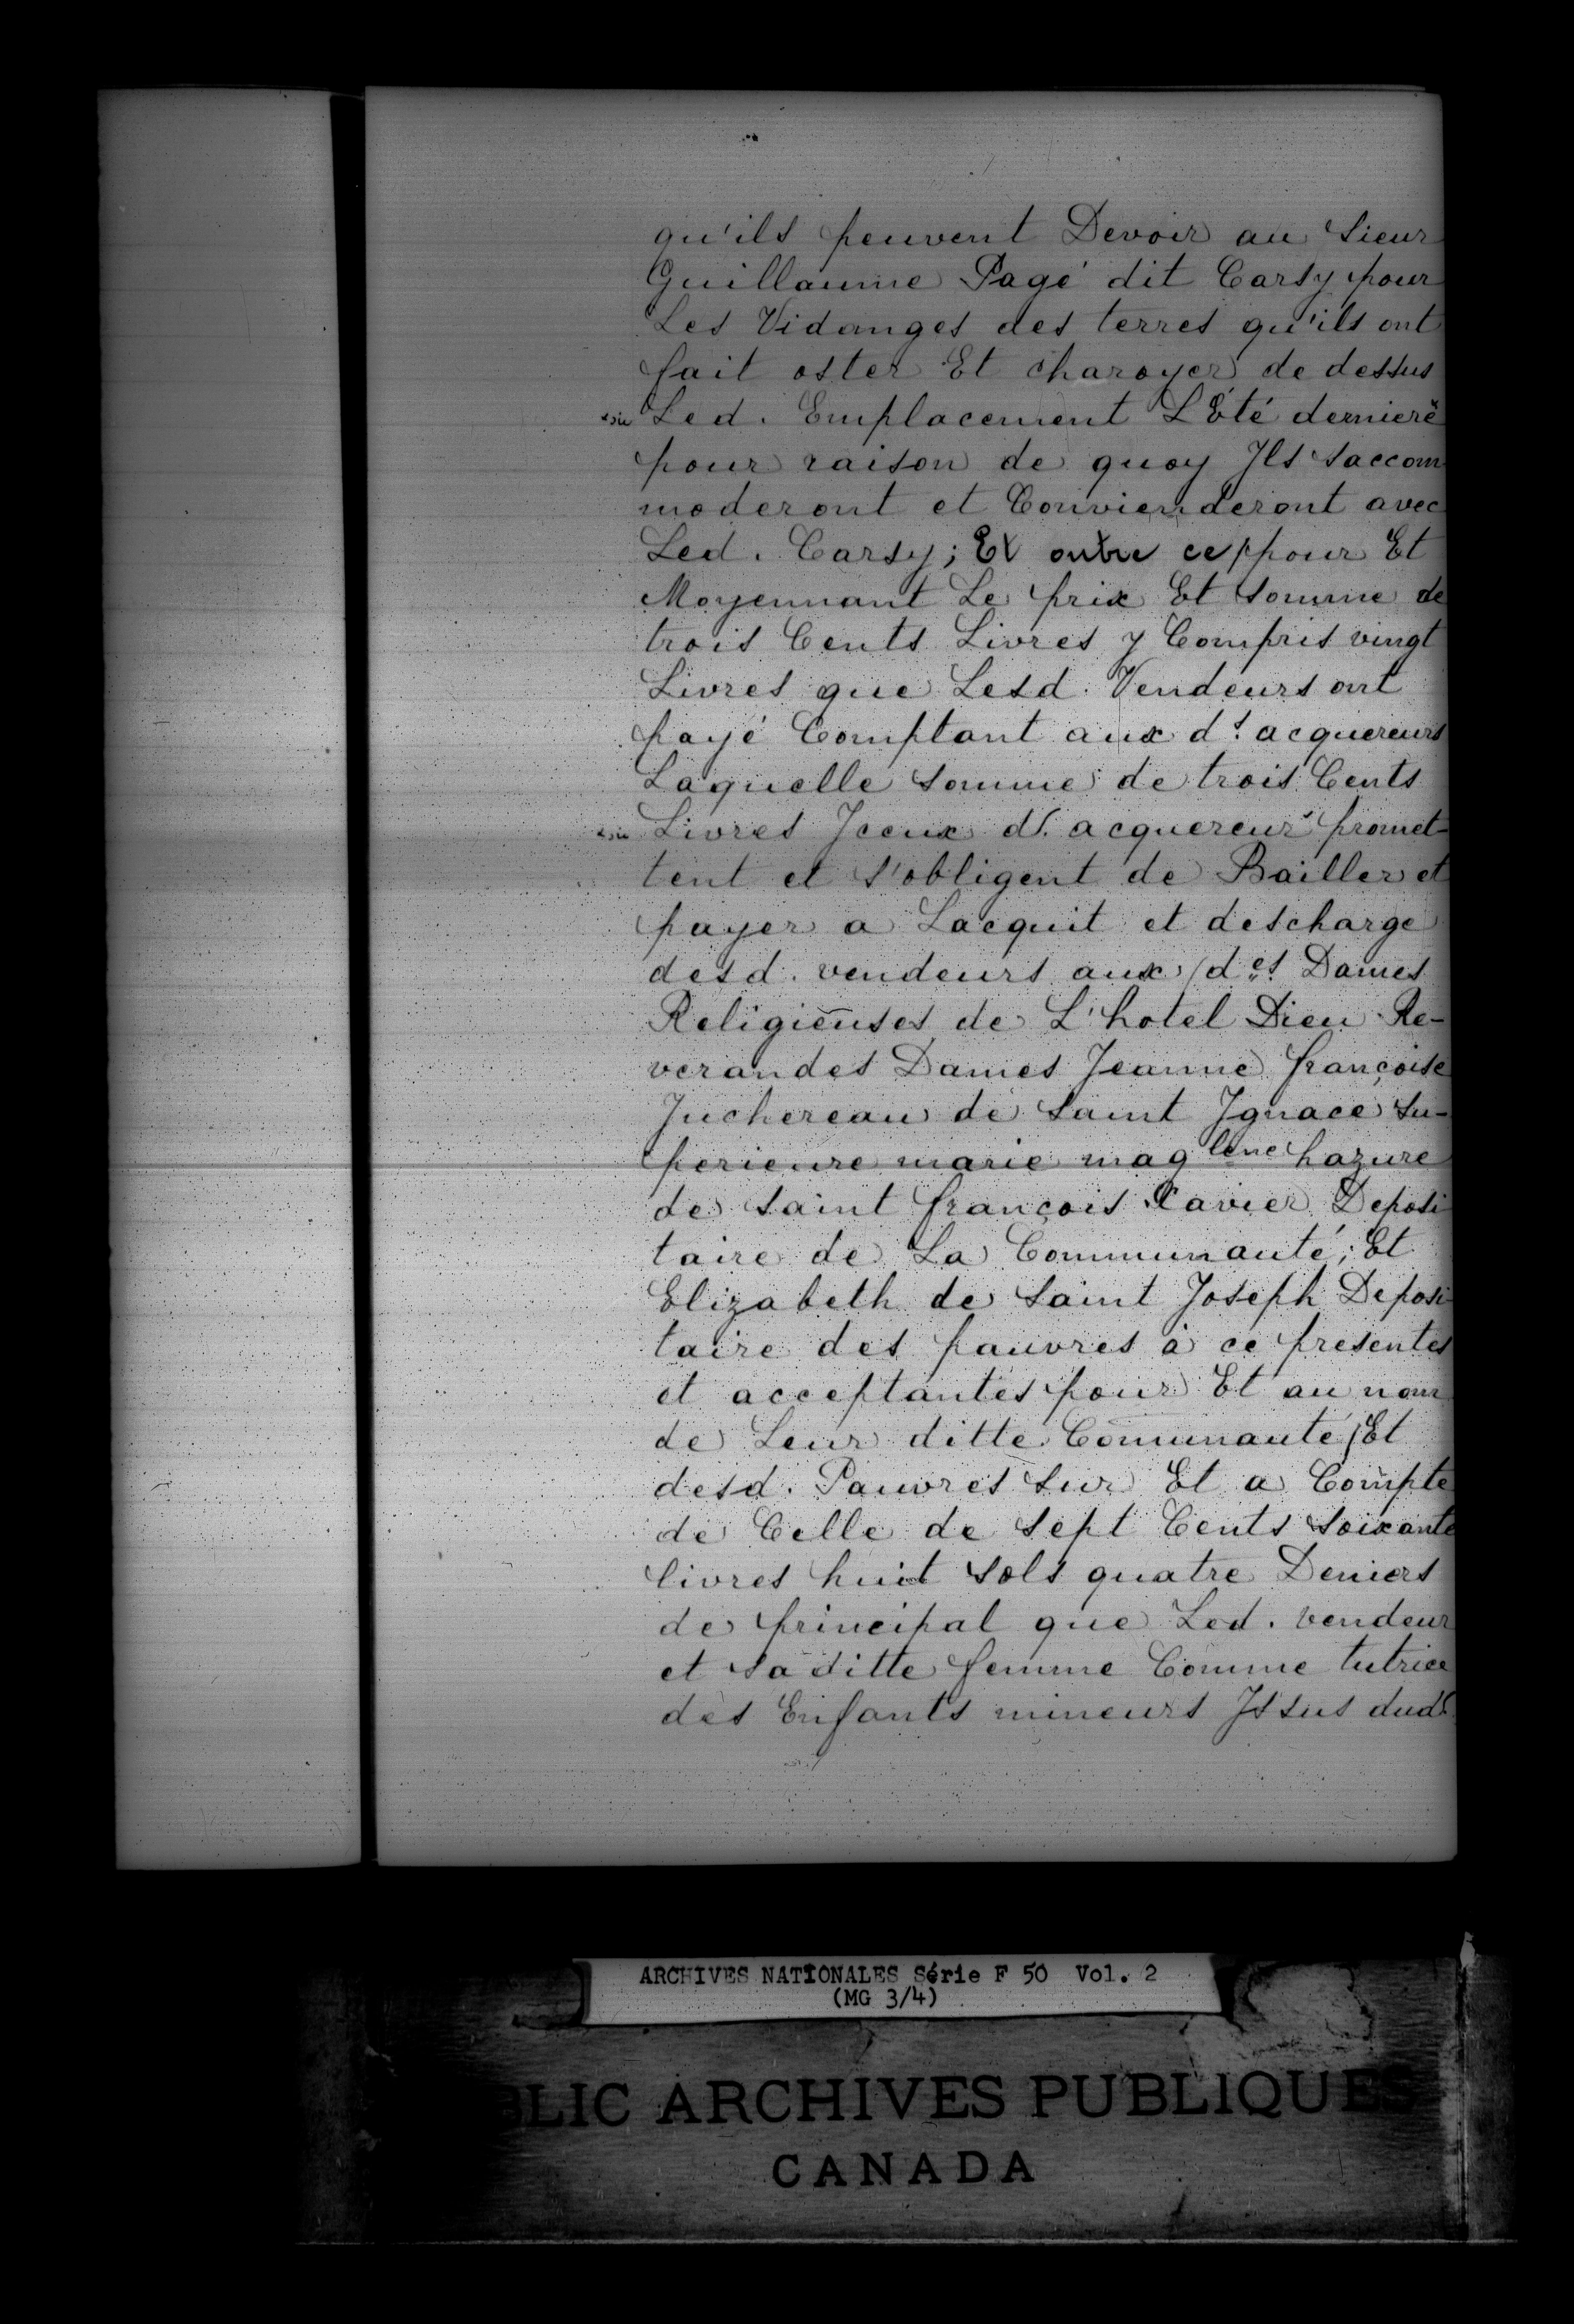 qu'ils peuvent Devoir au Sieur
Guillaume Pagé dit Carsy pour
Les Vidanges des terres qu'ils ont
fait oster Et charoyer de dessus
Led. Emplacement L'Été derniere
pour raison de quoy Ils saccom
moderont et Convienderont avec
Led. Carsy; Et outre ce pour Et
Moyennant Le prix Et somme de
trois Cents Livres y Compris vingt
Livres que Lesd. Vendeurs ont
payé Comptant aux ds. acquereurs
Laquelle somme de trois Cents
Livres Iceux d. acquereur promet-
tent et s'obligent de Bailler et
payer a Lacquit et descharge
desd. vendeurs aux des Dames
Religieuses de L'hotel Dieu Re-
verandes Dames Jeanne françoise
Juchereau de Saint Ignace Su-
perieure marie maglene hazure
de Saint françois Xavier Deposi
taire de La Communauté; Et
Elizabeth de Saint Joseph Deposi-
taire des pauvres à ce presentes
et acceptantes pour Et au nom
de Leur ditte Communauté, Et
desd. Pauvres Sur Et a Compte
de Celle de Sept Cents Soixante
livres huit Sols quatre Deniers
de principal que Led. vendeur
et Sa ditte femme Comme tutrice
des Enfants mineurs Issus dud.
ARCHIVES NATIONALES Série F 50 Vol. 2
(MG 3/4)
BLIC ARCHIVES PUBLIQUES
CANADA